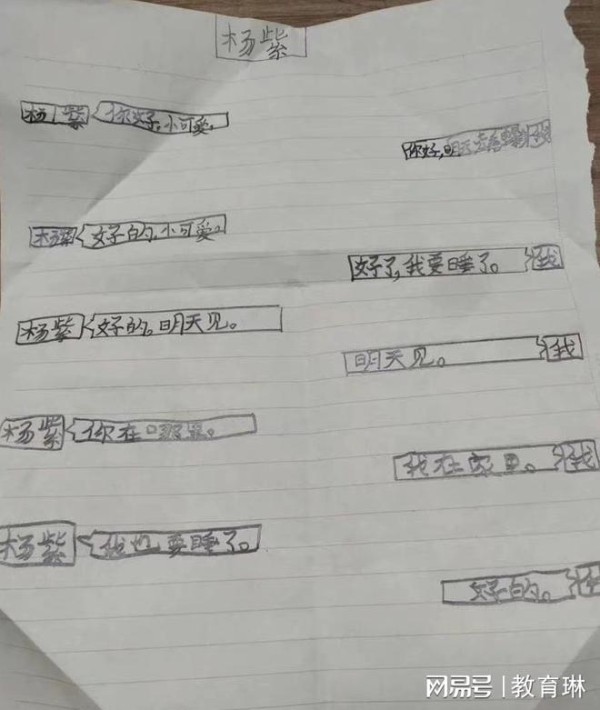 杨紫
杨紫 你好,小可爱。
你好,明天去 我
杨紫 好的,小可爱。
好了,我要睡了。 我
杨紫 好的。明天见。
明天见。 我
杨紫 你在哪里。
我在家里。 我
杨紫 我也要睡了。
好的。 我
网易号 | 教育琳